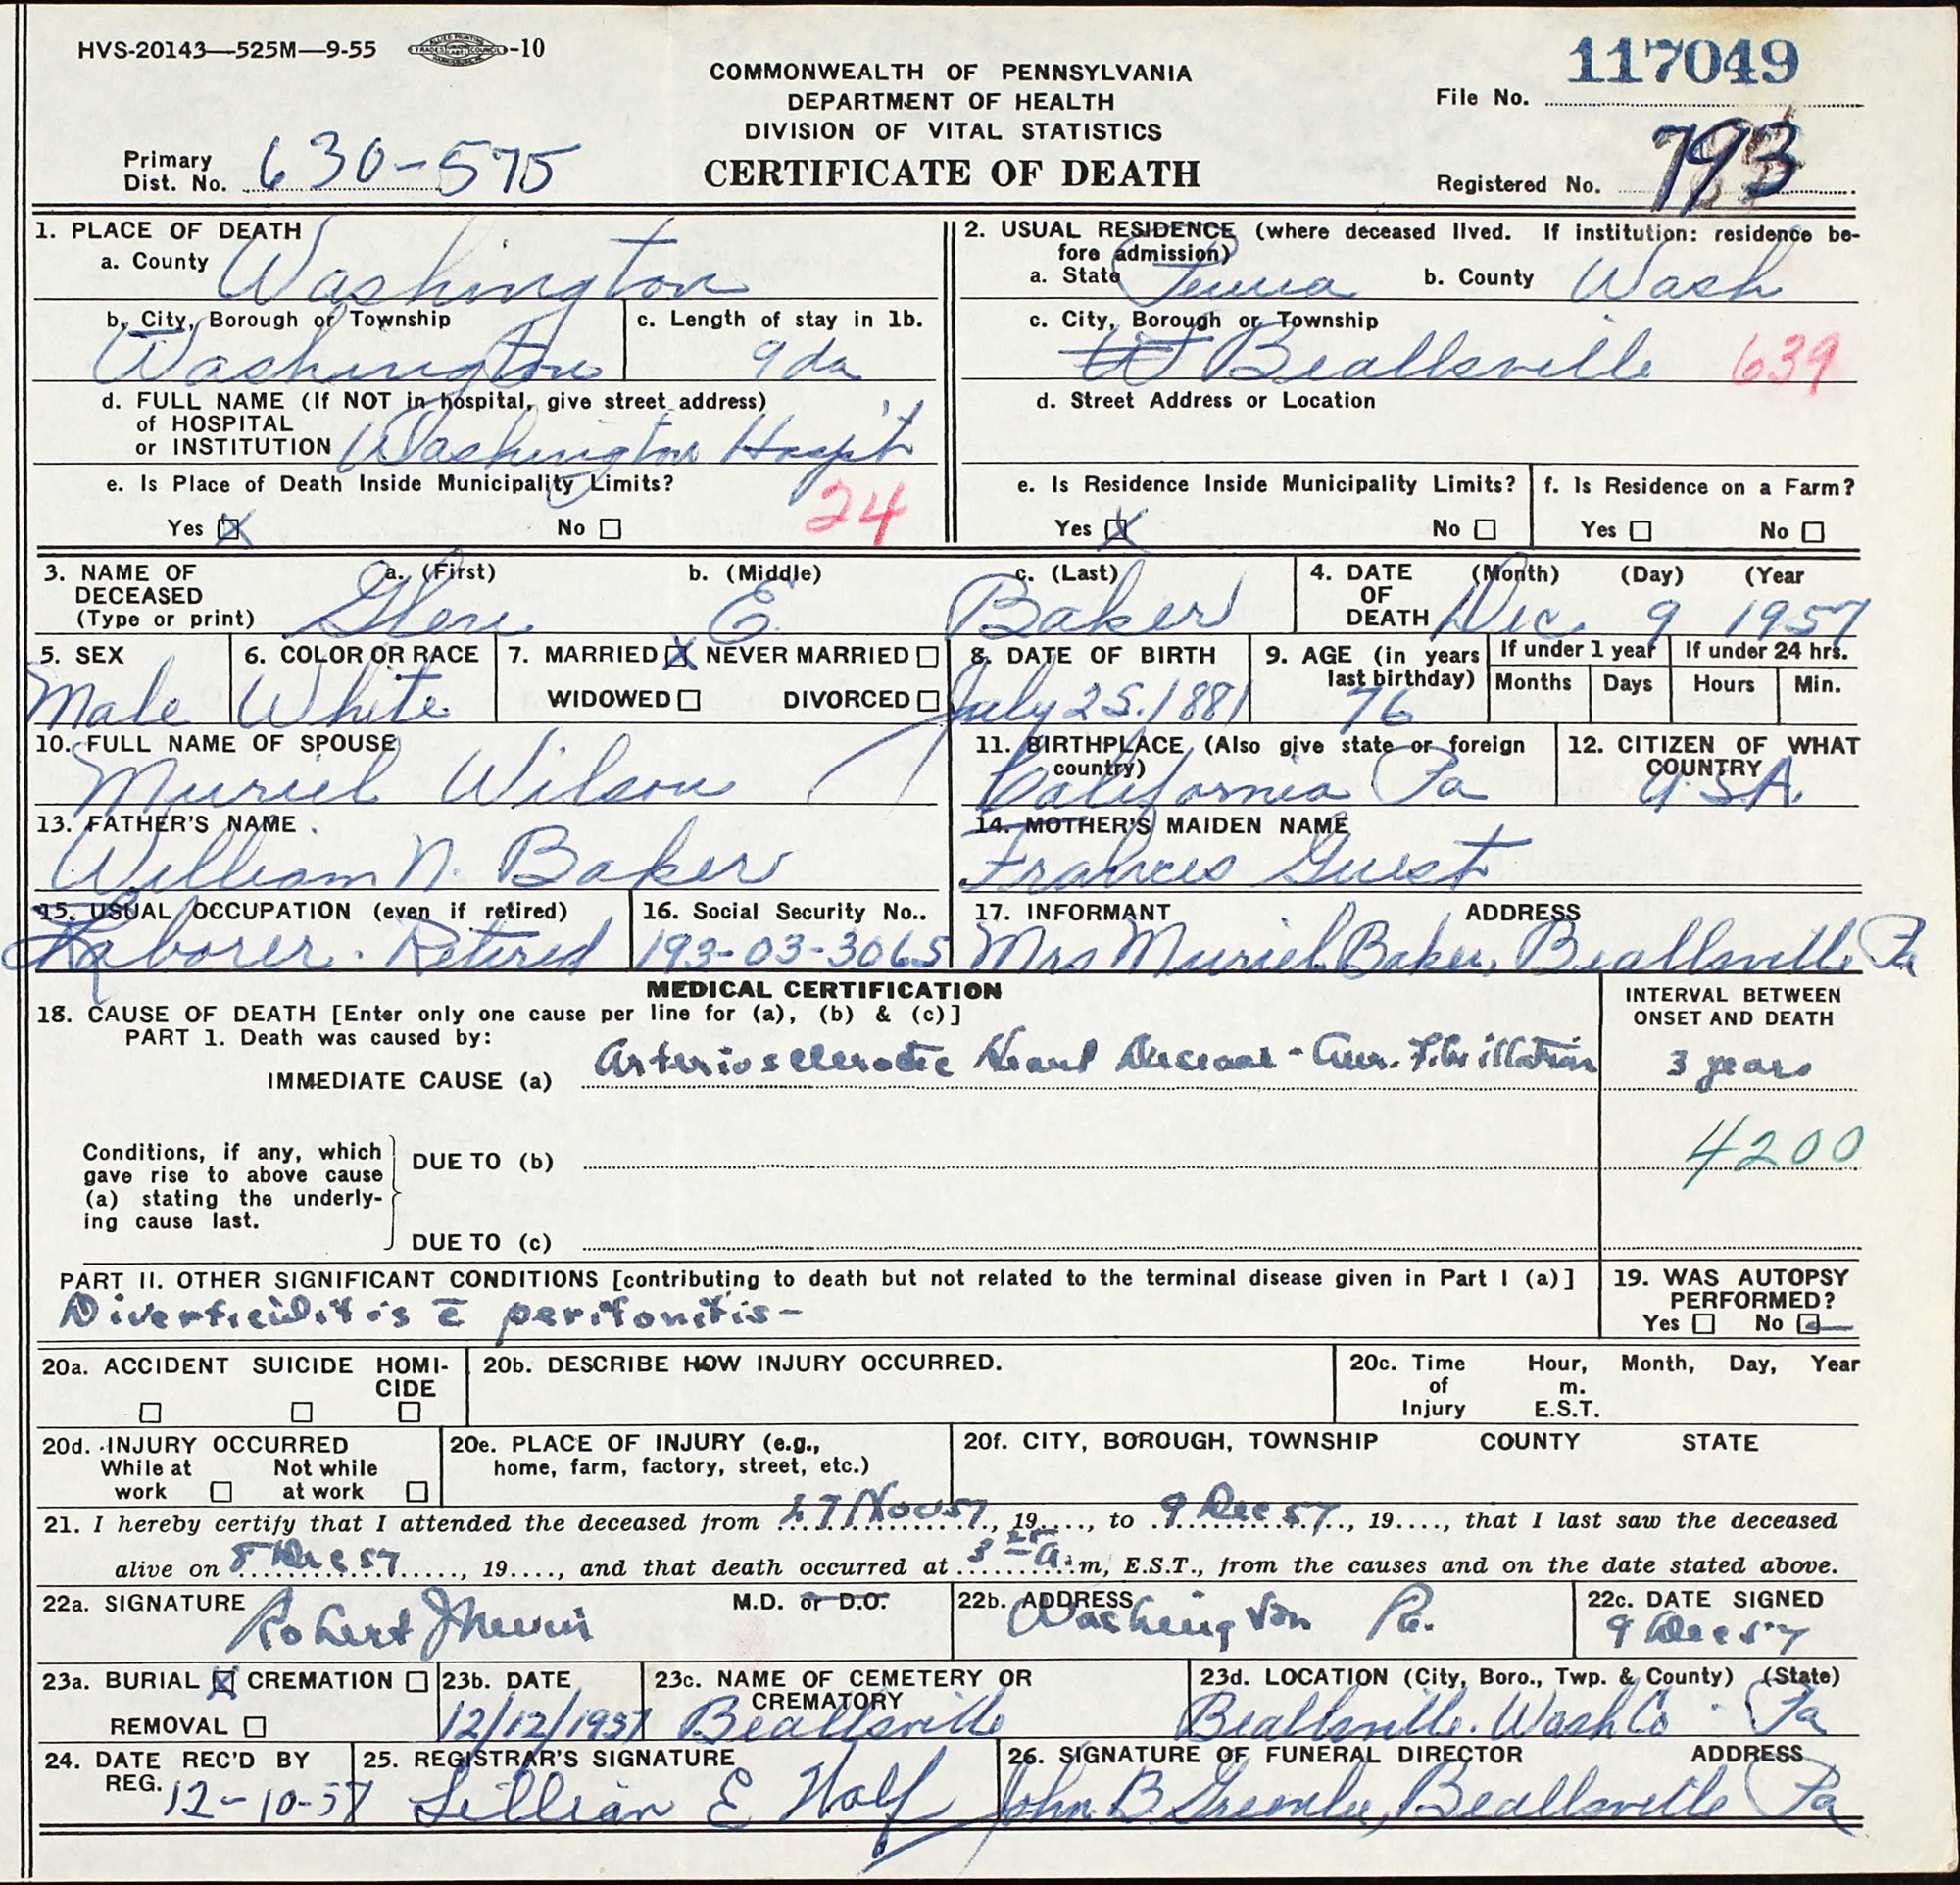 HVS-20143—525M—9-55 -10
117049
COMMONWEALTH OF PENNSYLVANIA
DEPARTMENT OF HEALTH
DIVISION OF VITAL STATISTICS
CERTIFICATE OF DEATH
File No.
Primary Dist. No. 630-575
Registered No. 793
1. PLACE OF DEATH
a. County Washington
b. City, Borough or Township Washington
c. Length of stay in 1b. 9 da
d. FULL NAME (If NOT in hospital, give street address)
of HOSPITAL
or INSTITUTION Washington Hospit
e. Is Place of Death Inside Municipality Limits? 24
Yes X No
2. USUAL RESIDENCE (where deceased lived. If institution: residence be-
fore admission)
a. State Penna b. County Wash
c. City, Borough or Township
W Beallsville 639
d. Street Address or Location
e. Is Residence Inside Municipality Limits?
Yes X No
f. Is Residence on a Farm?
Yes No
3. NAME OF DECEASED (Type or print)
a. (First) b. (Middle) c. (Last)
Glenn E. Baker
4. DATE OF DEATH (Month) (Day) (Year
Dec. 9 1957
5. SEX
Male
6. COLOR OR RACE
White
7. MARRIED X NEVER MARRIED
WIDOWED DIVORCED
8. DATE OF BIRTH
July 25. 1881
9. AGE (in years last birthday)
76
If under 1 year
Months Days
If under 24 hrs.
Hours Min.
10. FULL NAME OF SPOUSE
Muriel Wilson
11. BIRTHPLACE (Also give state or foreign country)
California Pa
12. CITIZEN OF WHAT COUNTRY
U.S.A.
13. FATHER'S NAME
William N. Baker
14. MOTHER'S MAIDEN NAME
Frances Guest
15. USUAL OCCUPATION (even if retired)
Laborer. Retired
16. Social Security No..
193-03-3065
17. INFORMANT ADDRESS
Mrs Muriel Baker, Beallsville Pa
MEDICAL CERTIFICATION
18. CAUSE OF DEATH [Enter only one cause per line for (a), (b) & (c)]
PART 1. Death was caused by:
INTERVAL BETWEEN
ONSET AND DEATH
IMMEDIATE CAUSE (a) Arteriosclerotic Heart Disease - Aur. Fibrillation 3 years
4200
Conditions, if any, which
gave rise to above cause
(a) stating the underly-
ing cause last.
DUE TO (b)
DUE TO (c)
PART II. OTHER SIGNIFICANT CONDITIONS [contributing to death but not related to the terminal disease given in Part I (a)]
Diverticulitis c̄ peritonitis -
19. WAS AUTOPSY
PERFORMED?
Yes No
20a. ACCIDENT SUICIDE HOMI-
CIDE
20b. DESCRIBE HOW INJURY OCCURRED.
20c. Time of Injury Hour, Month, Day, Year
m.
E.S.T.
20d. INJURY OCCURRED
While at work Not while at work
20e. PLACE OF INJURY (e.g.,
home, farm, factory, street, etc.)
20f. CITY, BOROUGH, TOWNSHIP COUNTY STATE
21. I hereby certify that I attended the deceased from 27 Nov 57, 19...., to 9 Dec 57, 19...., that I last saw the deceased
alive on 8 Dec 57, 19...., and that death occurred at 3 a.m, E.S.T., from the causes and on the date stated above.
22a. SIGNATURE M.D. or D.O.
Robert J
22b. ADDRESS
Washington Pa.
22c. DATE SIGNED
9 Dec 57
23a. BURIAL X CREMATION
REMOVAL
23b. DATE
12/12/1957
23c. NAME OF CEMETERY OR CREMATORY
Beallsville
23d. LOCATION (City, Boro., Twp. & County) (State)
Beallsville. Wash Co. Pa
24. DATE REC'D BY REG. 12-10-57
25. REGISTRAR'S SIGNATURE
Lillian E Wolf
26. SIGNATURE OF FUNERAL DIRECTOR ADDRESS
John B. Greenlee, Beallsville Pa